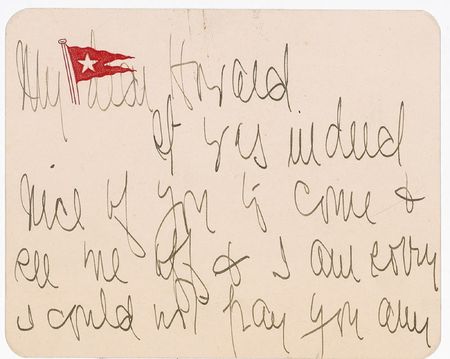 My dear Howard
it was indeed
nice of you to come &
see me off & I am sorry
I could not pay you any